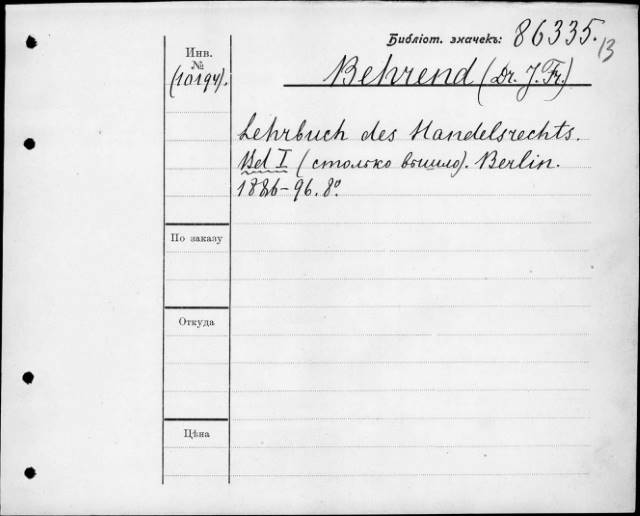 Библіот. значекъ: 86335.
13
Инв.
№
(10194).
Behrend (Dr. J. Fr.)
Lehrbuch des Handelsrechts.
Bd I (столько вышло). Berlin.
1886-96. 8º.
По заказу
Откуда
Цѣна